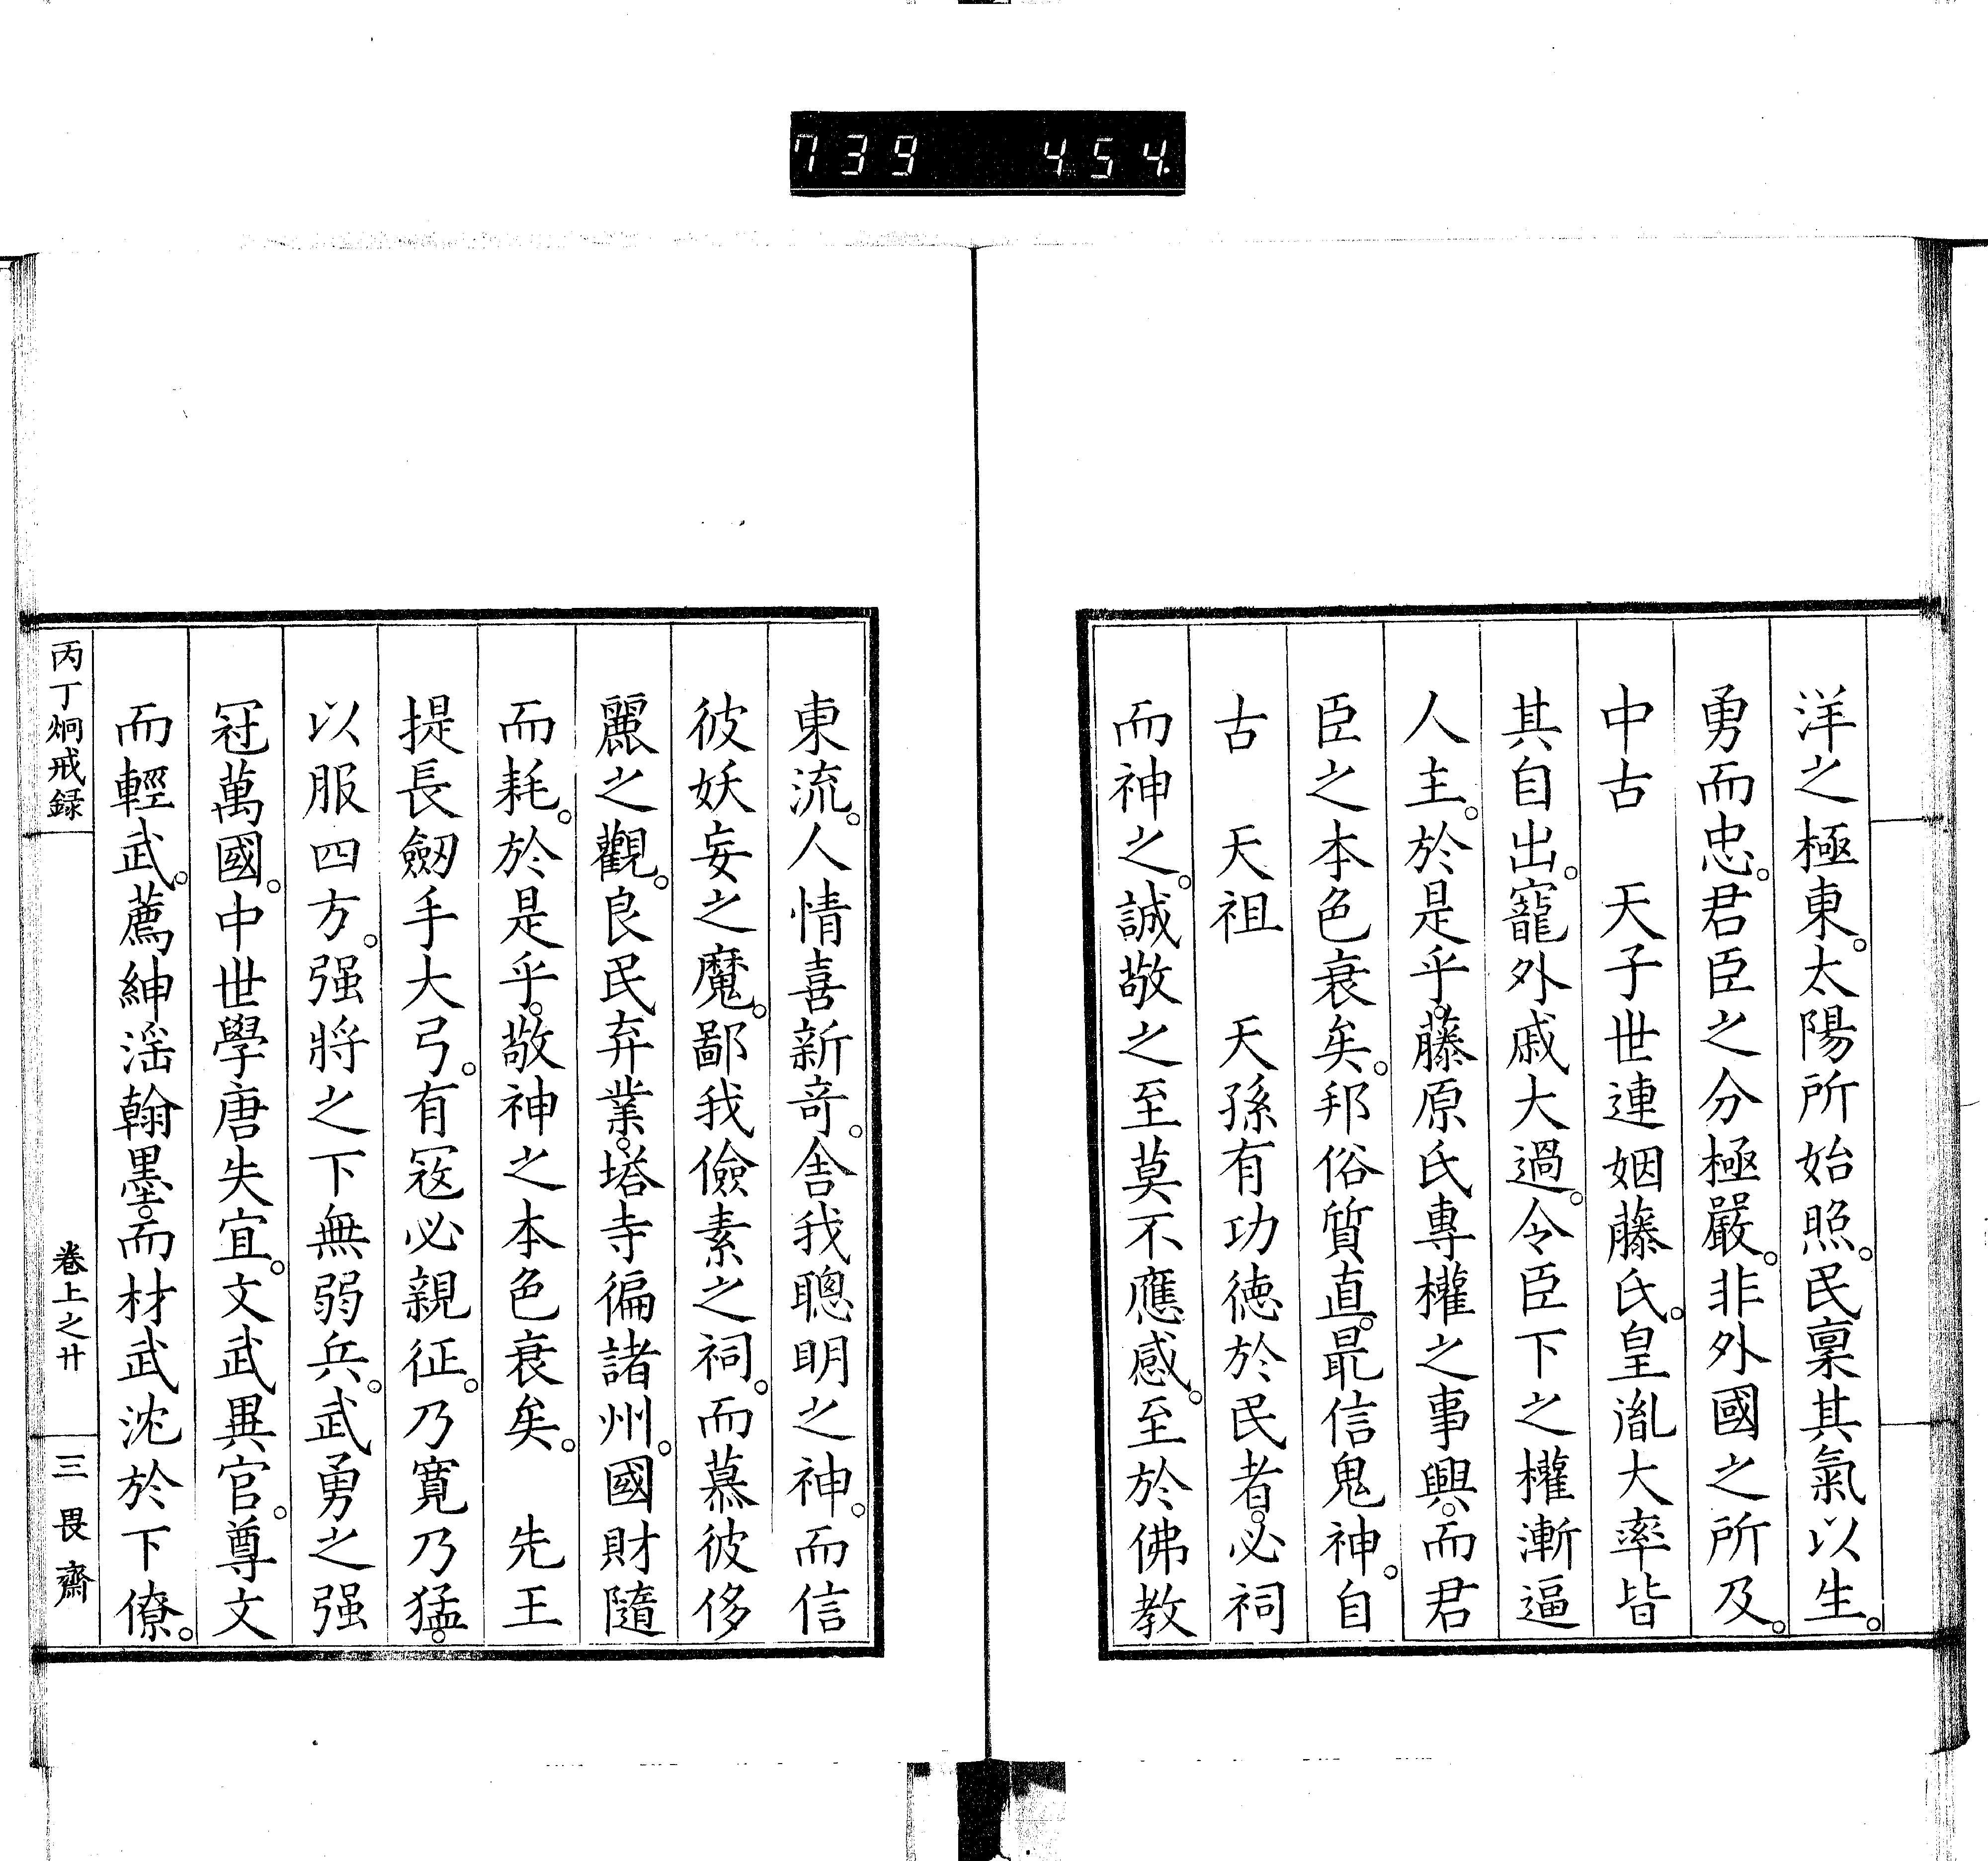 739 454.
洋之極東。太陽所始照。民稟其氣以生。
勇而忠。君臣之分極嚴。非外國之所及。
中古　天子世連姻藤氏。皇胤大率皆
其自出。寵外戚大過。令臣下之權漸逼
人主。於是乎。藤原氏專權之事興。而君
臣之本色衰矣。邦俗質直。最信鬼神。自
古　天祖　天孫有功徳於民者。必祠
而神之。誠敬之至莫不應感。至於佛教
東流。人情喜新奇。舎我聰明之神。而信
彼妖妄之魔。鄙我儉素之祠。而慕彼侈
麗之觀。良民弃業。塔寺徧諸州。國財隨
而耗。於是乎。敬神之本色衰矣。　先王
提長劔手大弓。有寇必親征。乃寛乃猛。
以服四方。强將之下無弱兵。武勇之强
冠萬國。中世學唐失宜。文武異官。尊文
而輕武。薦紳滛翰墨。而材武沈於下僚。
丙丁炯戒録　卷上之廿　三畏齋